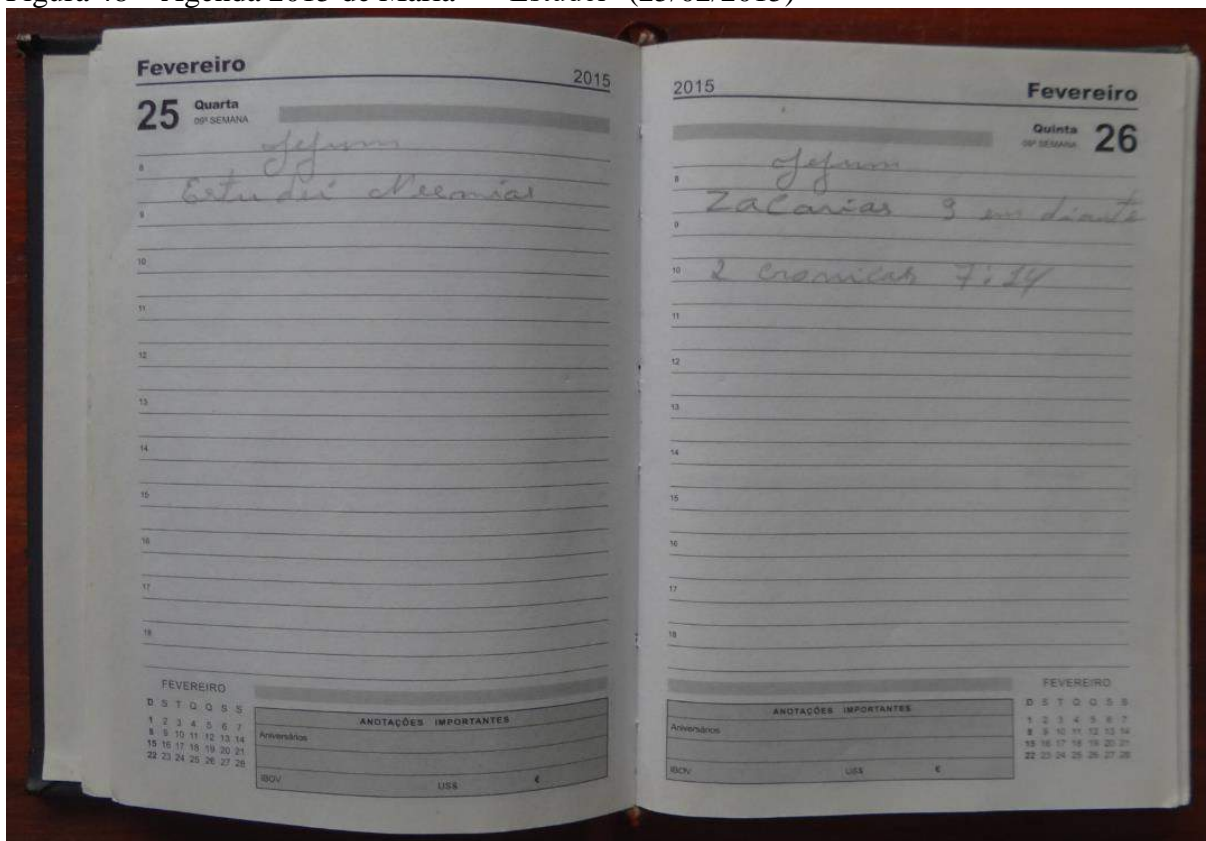 Fevereiro
2015
25 Quarta
09ª SEMANA
Jejum
8
Estudei Neemias
9
10
11
12
13
14
15
16
17
18
FEVEREIRO
D S T Q Q S S
1 2 3 4 5 6 7
8 9 10 11 12 13 14
15 16 17 18 19 20 21
22 23 24 25 26 27 28
ANOTAÇÕES IMPORTANTES
Aniversários
IBOV US$ €
2015
Fevereiro
Quinta 26
09ª SEMANA
Jejum
8
Zacarias 9 em diante
9
10 2 cronicas 7:14
11
12
13
14
15
16
17
18
ANOTAÇÕES IMPORTANTES
Aniversários
IBOV US$ €
FEVEREIRO
D S T Q Q S S
1 2 3 4 5 6 7
8 9 10 11 12 13 14
15 16 17 18 19 20 21
22 23 24 25 26 27 28